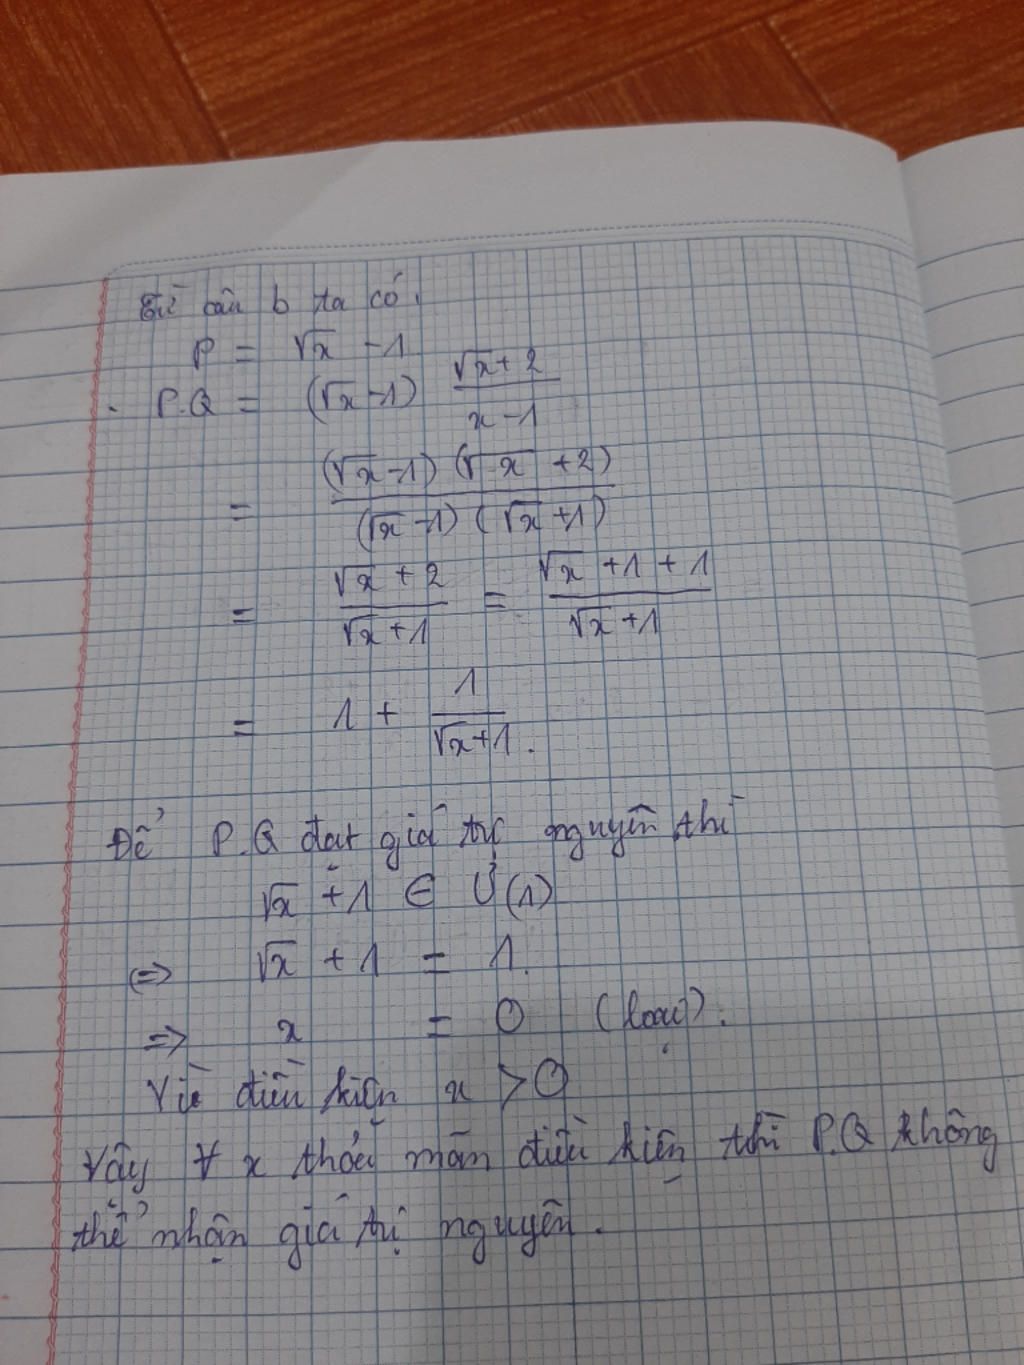 Từ câu b ta có.
P = √x - 1
. P.Q = (√x - 1) (√x + 2)/(x - 1)
= (√x - 1) (√x + 2)/(√x - 1) (√x + 1)
= (√x + 2)/(√x + 1) = (√x + 1 + 1)/(√x + 1)
= 1 + 1/(√x + 1).
Để P.Q đạt giá trị nguyên thì
√x + 1 ∈ Ư(1)
<=> √x + 1 = 1.
=> x = 0 (loại).
Vì điều kiện x > 0
Vậy ∀ x thoả mãn điều kiện thì P.Q không
thể nhận giá trị nguyên.